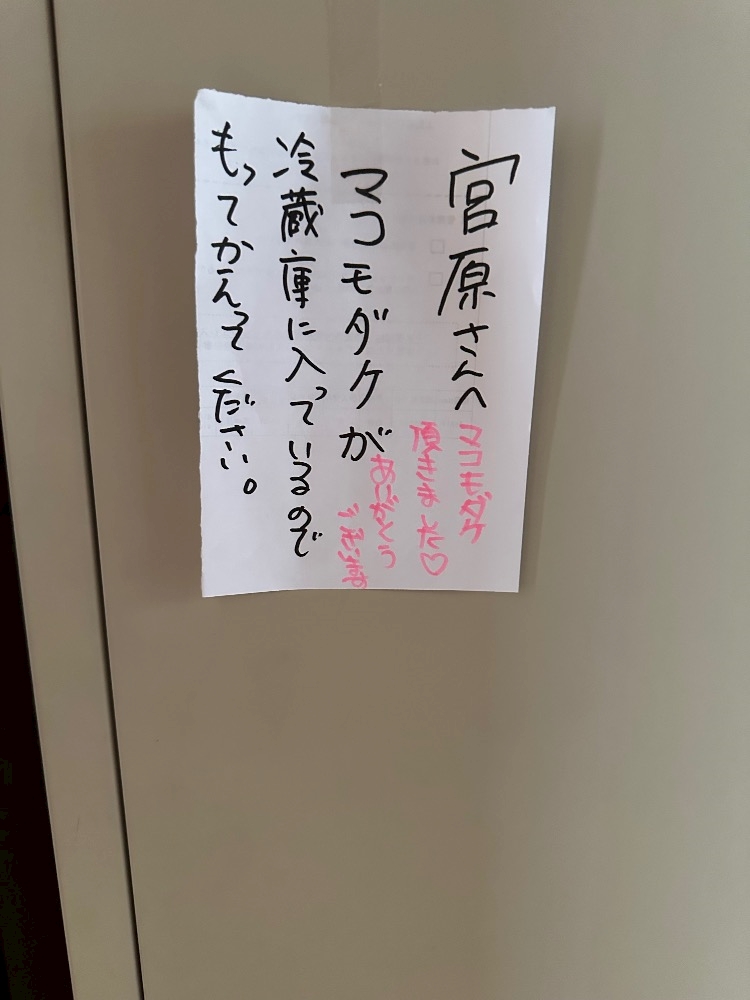 宮原さんへ
マコモダケが
冷蔵庫に入っているので
もってかえってください。
マコモダケ
頂きました♡
ありがとう
ございます